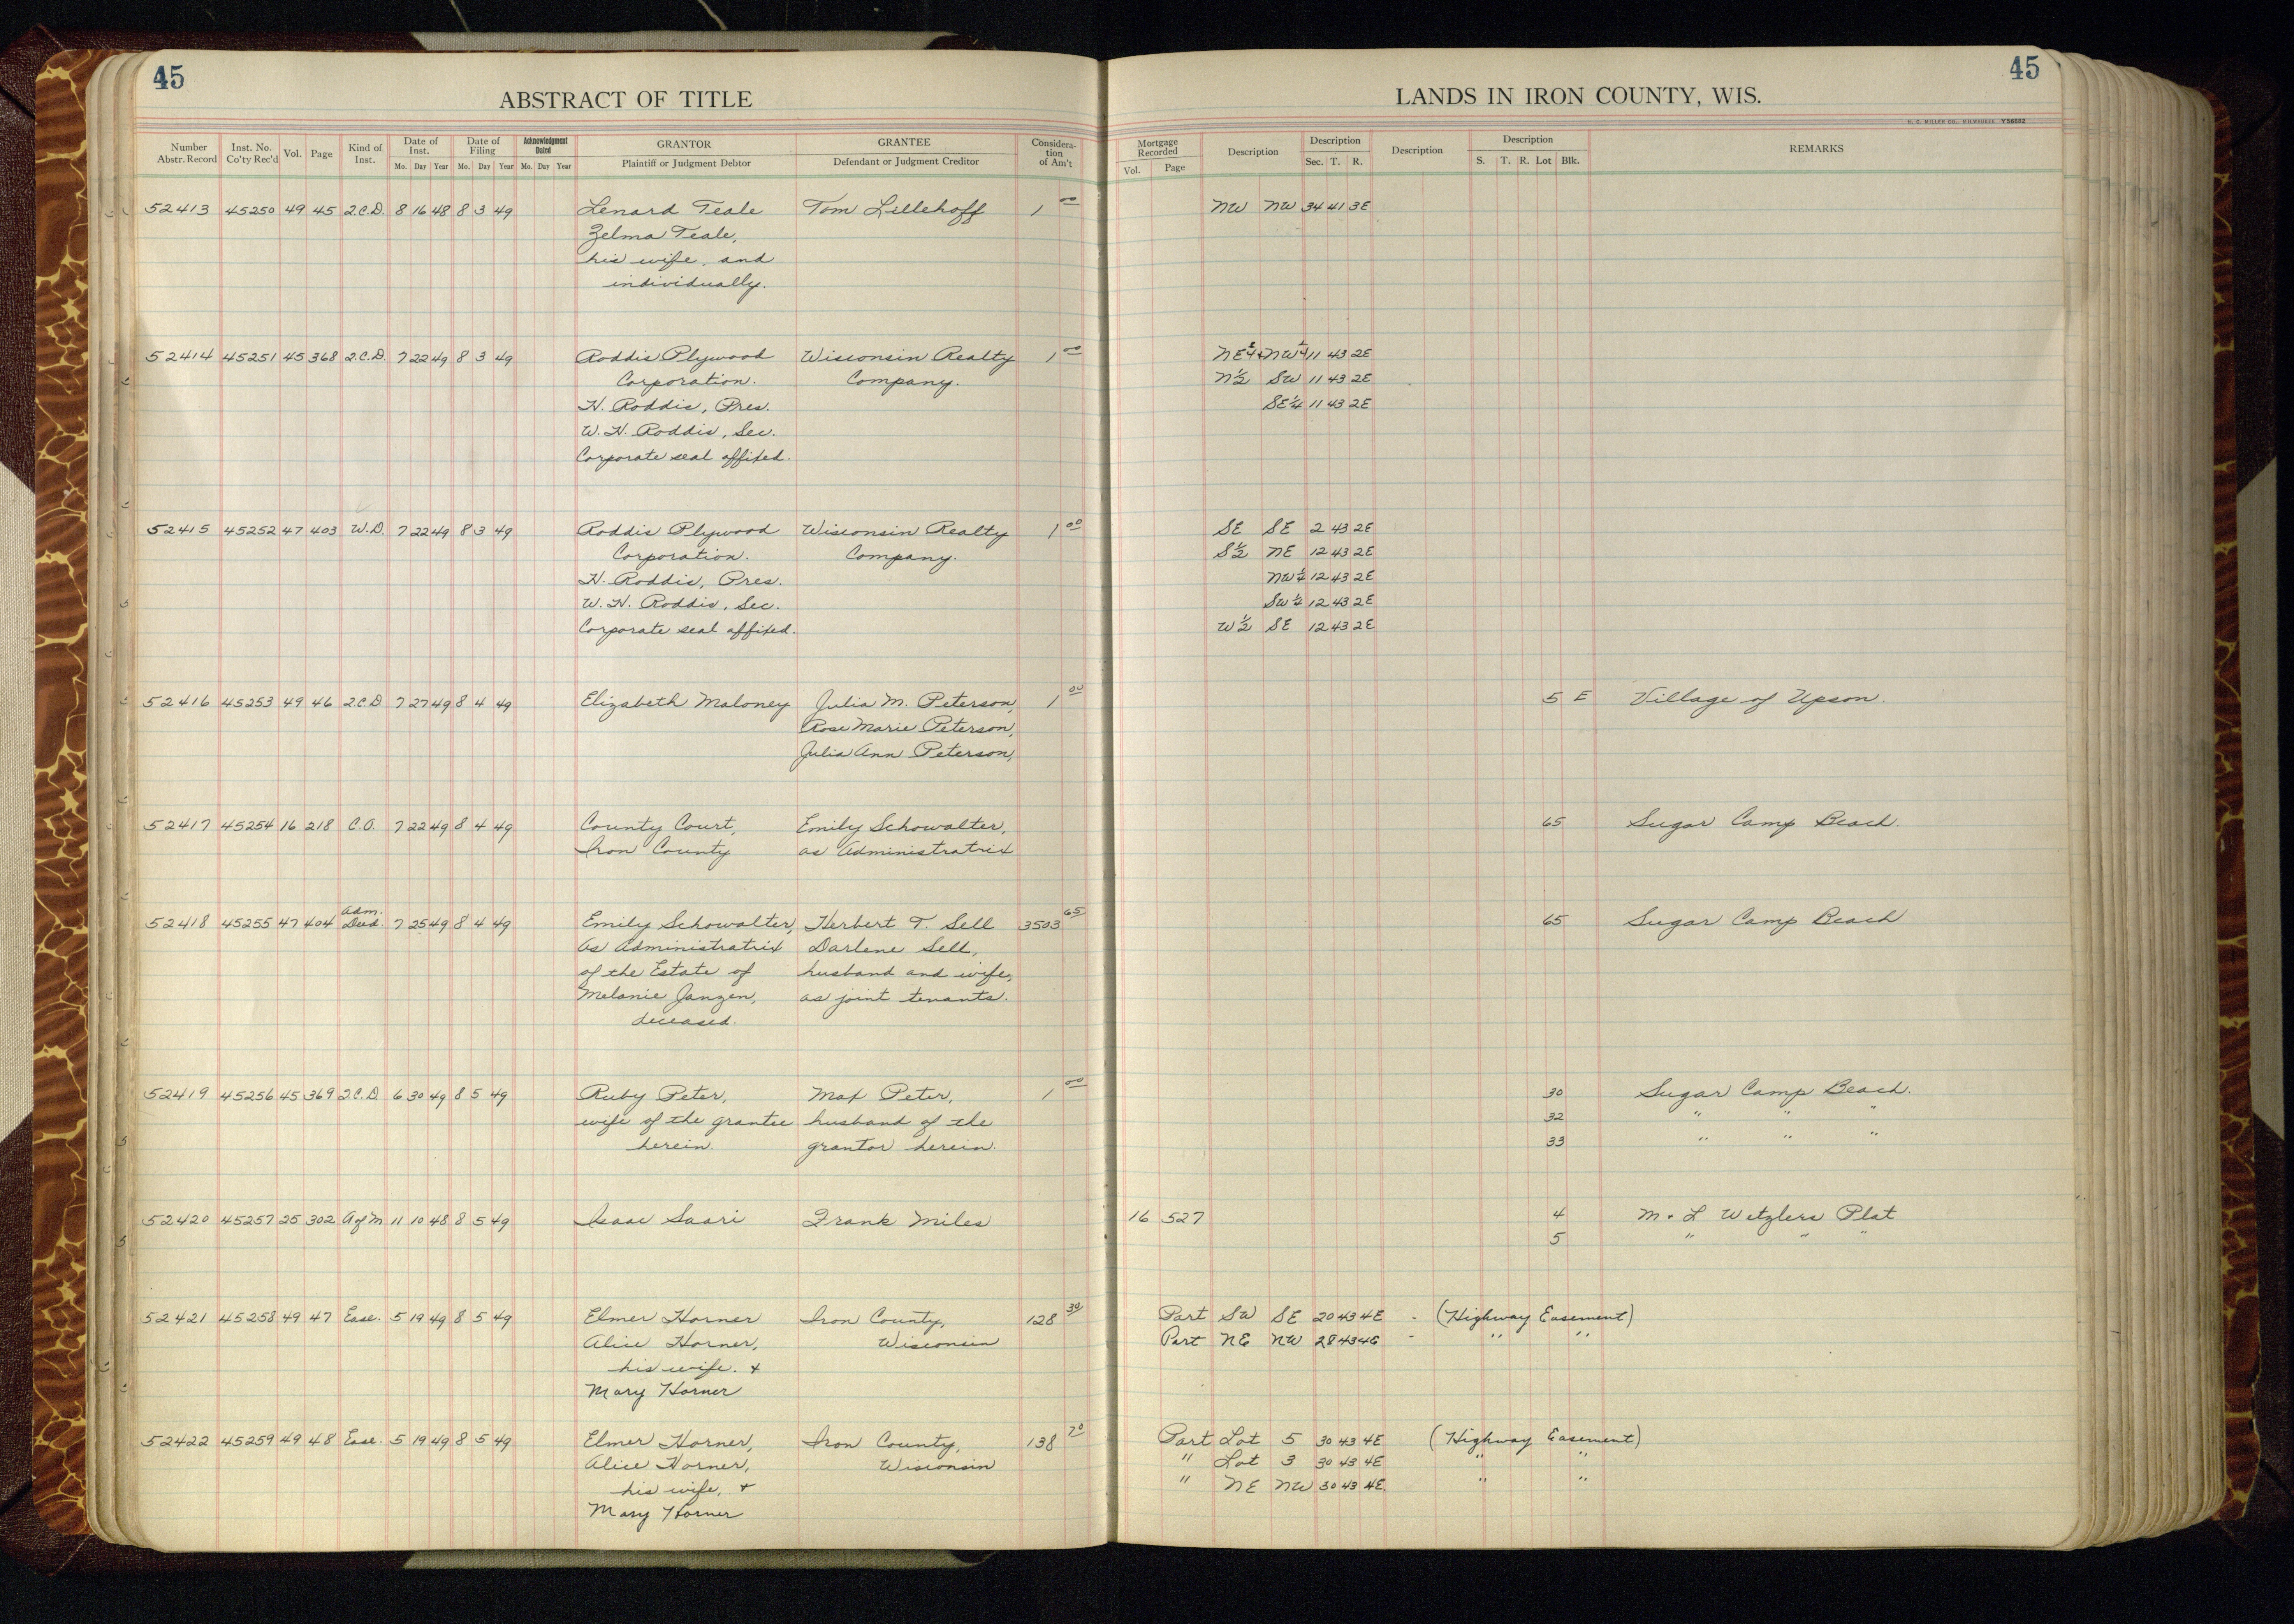 45
ABSTRACT OF TITLE
Number Abstr. Record Inst. No. Co'ty Rec'd Vol. Page Kind of Inst. Date of Inst. Mo. Day Year Date of Filing Mo. Day Year Acknowledgment Dated Mo. Day Year GRANTOR Plaintiff or Judgment Debtor GRANTEE Defendant or Judgment Creditor Considera-tion of Am't
45
LANDS IN IRON COUNTY, WIS.
H. C. MILLER CO., MILWAUKEE Y56882
Mortgage Recorded Vol. Page Description Description Sec. T. R. Description Description S. T. R. Lot Blk. REMARKS
52413 45250 49 45 2.C.D. 8 16 48 8 3 49 Lenard Teale Tom Lillehoff 1 00 NW NW 34 41 3E
Zelma Teale,
his wife, and
individually.
52414 45251 45 368 2.C.D. 7 22 49 8 3 49 Roddis Plywood Wisconsin Realty 1 00 NE¼+NW¼ 11 43 2E
Corporation. Company. N½ SW 11 43 2E
H. Roddis, Pres. SE¼ 11 43 2E
W. H. Roddis, Sec.
Corporate seal affixed.
52415 45252 47 403 W.D. 7 22 49 8 3 49 Roddis Plywood Wisconsin Realty 1 00 SE SE 2 43 2E
Corporation. Company. S½ NE 12 43 2E
H. Roddis, Pres. NW¼ 12 43 2E
W. H. Roddis, Sec. SW¼ 12 43 2E
Corporate seal affixed. W½ SE 12 43 2E
52416 45253 49 46 2.C.D 7 27 49 8 4 49 Elizabeth Maloney Julia M. Peterson, 1 00 5 E Village of Upson.
Rose Marie Peterson,
Julia Ann Peterson,
52417 45254 16 218 C.O. 7 22 49 8 4 49 County Court, Emily Schowalter, 65 Sugar Camp Beach.
Iron County as Administratrix
52418 45255 47 404 Adm. Deed. 7 25 49 8 4 49 Emily Schowalter, Herbert T. Sell 3503 65 65 Sugar Camp Beach
As Administratrix Darlene Sell,
of the Estate of husband and wife,
Melanie Janzen, as joint tenants.
deceased.
52419 45256 45 369 2.C.D. 6 30 49 8 5 49 Ruby Peter, Max Peter, 1 00 30 Sugar Camp Beach.
wife of the grantee husband of the 32 " " "
herein. grantor herein. 33 " " "
52420 45257 25 302 A of M 11 10 48 8 5 49 Isaac Saari Frank Miles 16 527 4 M. & L Wetzlers Plat
5 " " "
52421 45258 49 47 Ease. 5 19 49 8 5 49 Elmer Horner Iron County, 128 30 Part SW SE 20 43 4E - (Highway Easement)
Alice Horner, Wisconsin Part NE NW 28 43 4E - " "
his wife. &
Mary Horner
52422 45259 49 48 Ease. 5 19 49 8 5 49 Elmer Horner, Iron County, 138 70 Part Lot 5 30 43 4E (Highway Easement)
Alice Horner, Wisconsin " Lot 3 30 43 4E " "
his wife, & " NE NW 30 43 4E. " "
Mary Horner